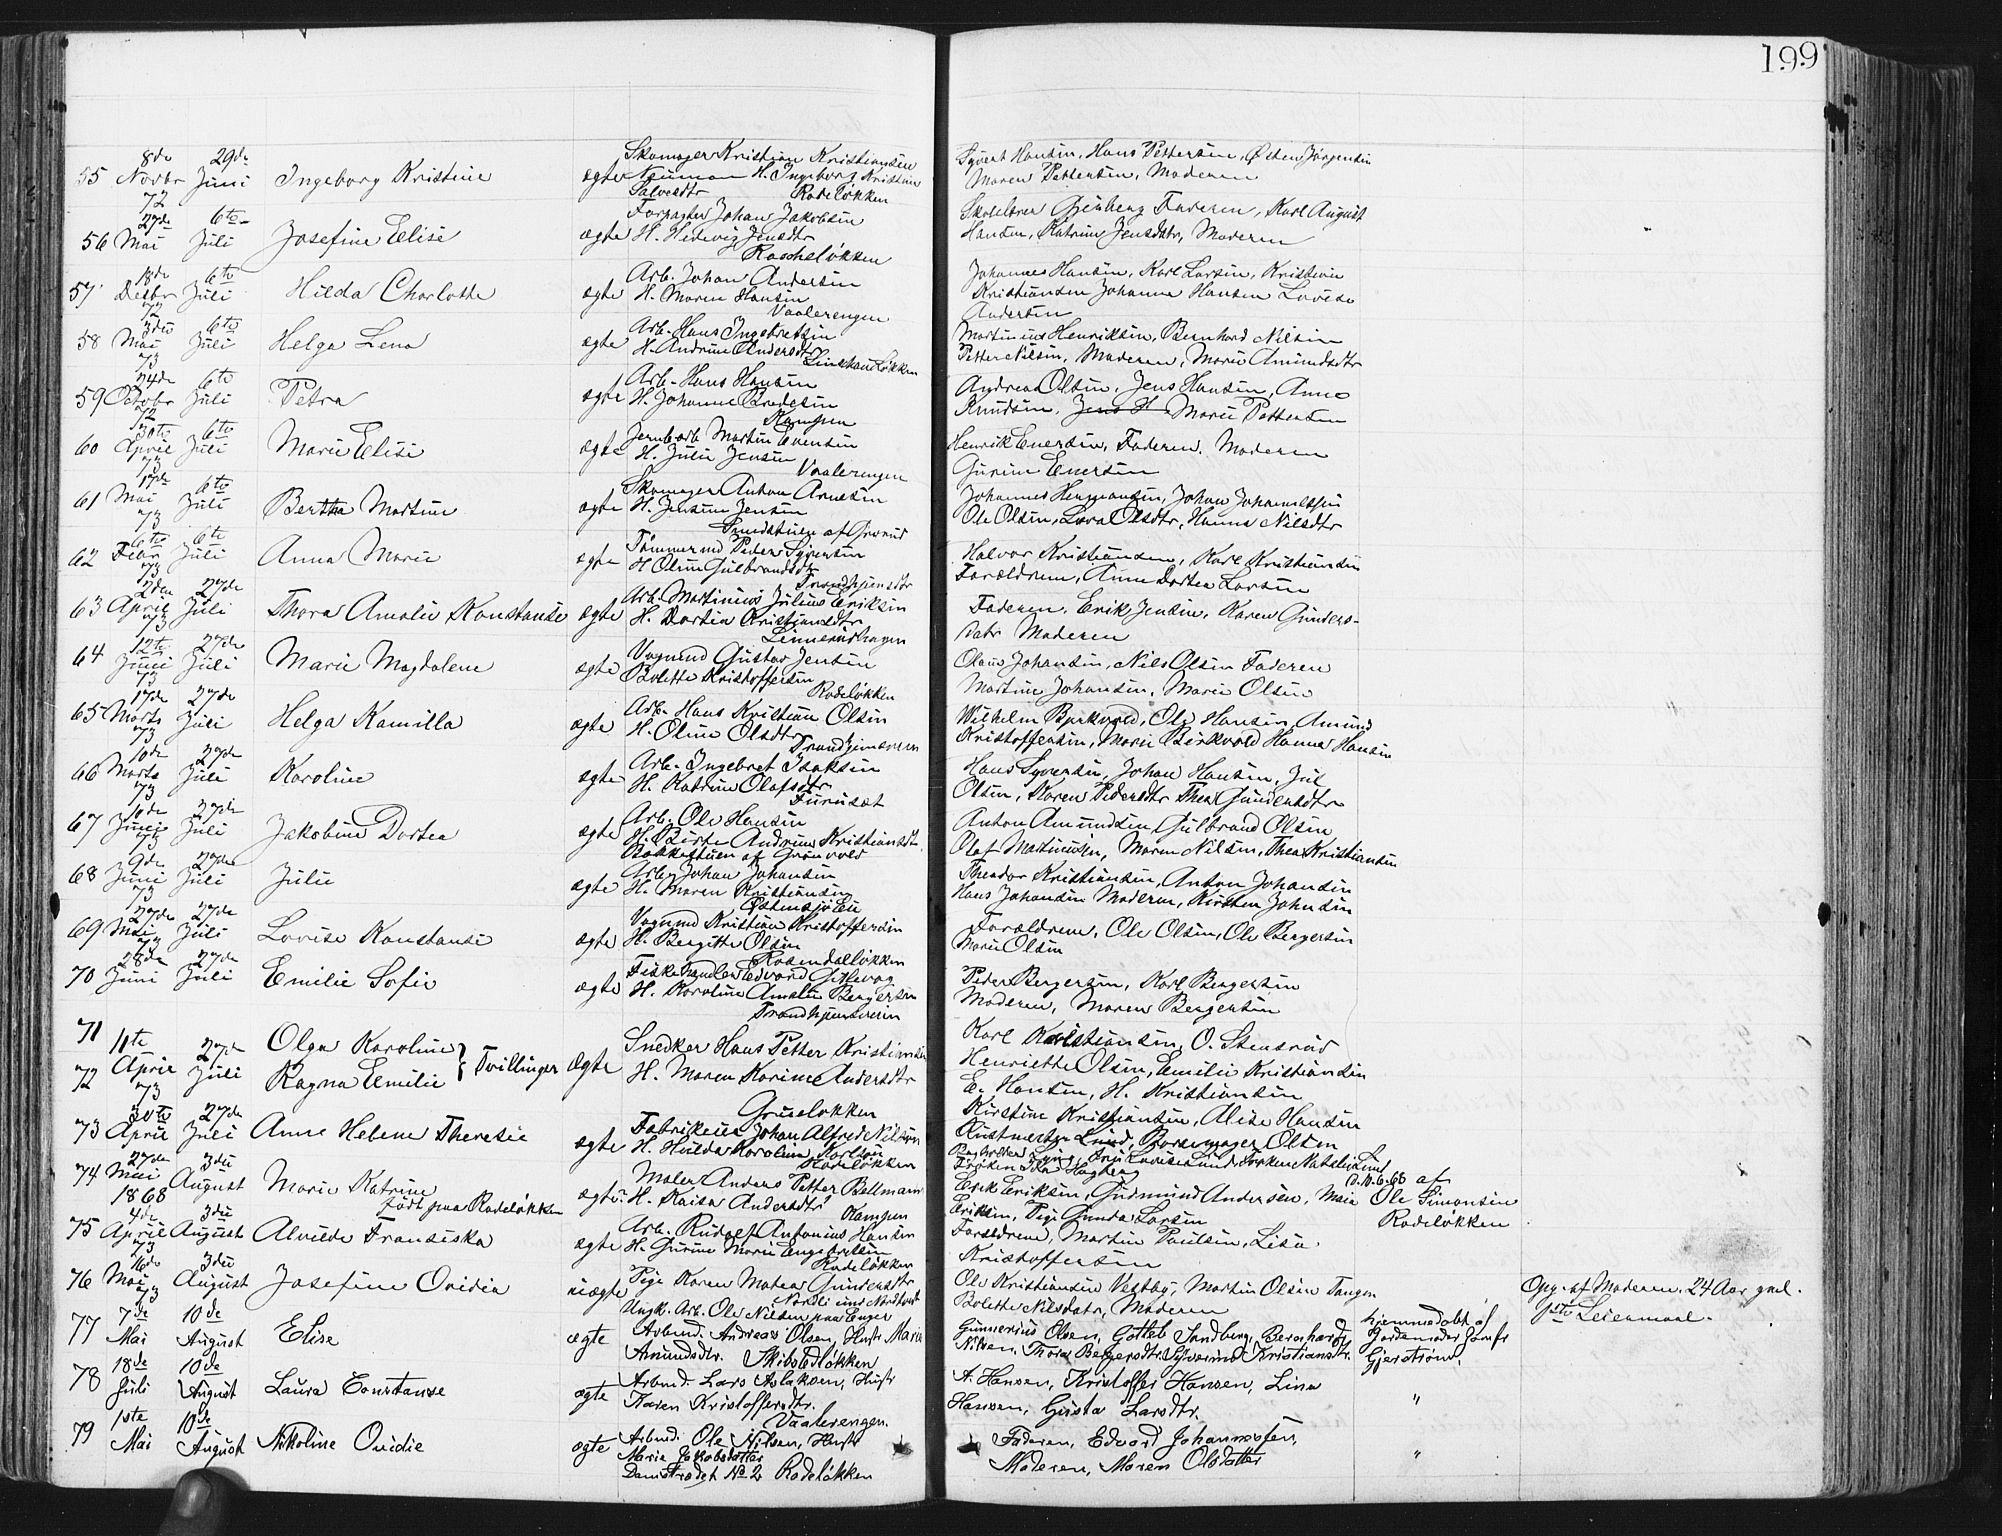 199
55 8de Novbr 72 29de Juni Ingeborg Kristine ægte Skomager Kristian Kristiansen
H. Ingeborg Kristine
Salvesdtr Rodeløkken
Syvert Hansen, Hans Pettersen, Østen Jørgensen
Maren Pettersen, Moderen
56 27de Mai 6te Juli Josefine Elise ægte Forpagter Johan Jakobsen
H. Hedevig Jensdtr
Rosheløkken
Skolelærer Grønberg Faderen, Karl August
Hansen, Katrine Jensdatr, Moderen
57 18de Desbr 72 6te Juli Hilda Charlotte ægte Arb. Johan Andersen
H. Maren Hansen
Vaalerengen
Johannes Hansen, Karl Larsen, Kristian
Kristiansen Johanne Hansen Lovise
Andersen
58 3die Mai 73 6te Juli Helga Lena ægte Arb. Hans Ingebretsen
H. Andrine Andersdtr
Martinius Henriksen, Bernhard Nilsen
Petter Nilsen, Moderen, Marie Amundsdtr
59 24de Octobr 72 6te Juli Petra ægte Arb. Hans Hansen
H. Johanne Bredesen
Kampen
Andreas Olsen, Jens Hansen, Anne
Knudsen, Jens H. Marie Pettersen
60 30te April 73 6te Juli Marie Elise ægte Jernbarb. Martin Evensen
H. Julie Jensen
Vaalerengen
Henrik Enersen, Faderen, Moderen
Gurine Enersen
61 17de Mai 73 6te Juli Bertha Martine ægte Skomager Anton Arnesen
H. Jensine Jensen
Johannes Hermansen, Johan Johannessen
Ole Olsen, Lova Olsdtr, Hanna Nilsdtr
62 6te Febr 73 6te Juli Anna Marie ægte Tømmermd Peder Syversen
H Oline Gulbrandsdtr
Halvor Kristiansen, Karl Kristiansen
Forældrene, Anne Dortea Larsen
63 2den April 73 27de Juli Thora Amalie Konstanse ægte Arb. Martinius Julius Eriksen
H. Dortea Kristiansdtr
Faderen, Erik Jensen, Karen Gunders-
datr Moderen
64 12te Juni 73 27de Juli Marie Magdalene ægte Vognmd Gustav Jensen
Bolette Kristoffersen
Rodeløkken
Olaus Johansen, Nils Olsen Faderen
Martine Johansen, Marie Olsen
65 17de Marts 73 27de Juli Helga Kamilla ægte Arb. Hans Kristian Olsen
H. Oline Olsdtr
Wilhelm Bjerkvold, Ole Hansen Amund
Kristoffersen, Marie Birkvold Hanna Hansen
66 10de Marts 73 27de Juli Karoline ægte Arb. Ingebret Isaksen
H. Katrine Olafsdtr
Furuset
Hans Syversen, Johan Hansen, Jul
Olsen, Karen Pedersdtr Thea Gundersdtr
67 16de Juni 73 27de Juli Jakobine Dortea ægte Arb. Ole Hansen
H. Birte Andrine Kristiansdt.
Bakkestuen af Grønvold
Anton Amundsen Gulbrand Olsen
Olaf Martinusen, Maren Nilsen, Thea Kristiansen
68 9de Juni 73 27de Juli Julie ægte Arb. Johan Johansen
H. Maren Kristiansen
Theodor Kristiansen, Anton Johansen
Hans Johansen Moderen, Kirsten Johnsen
69 27de Mai 73 27de Juli Lovise Konstanse ægte Vognmd Kristian Kristoffersen
H. Bergitte Olsen
Rosendalløkken
Forældrene, Ole Olsen, Ole Bergersen
Marie Olsen
70 28de Juni 27de Juli Emilie Sofie ægte Fiskehandler Edvard Gitlevag
H. Karoline Amalie Bergersen
Trondhjemsveien
Peder Bergersen, Karl Bergersen
Moderen, Maren Bergersen
71 11te April 73 27de Juli Olga Karoline } Tvillinger Ægte Snedker Hans Petter Kristiansen
72 Ragna Emilie H. Maren Karine Andersdtr
Grueløkken
Karl Kristiansen, O. Stensrud
Henriette Olsen, Emilie Kristiansen
E. Hansen, H. Kristiansen
Kirstine Kristiansen, Alise Hansen
73 30te April 27de Juli Anne Helene Theresie ægte Fabrikeier Johan Alfred Nilsen
H. Hulda Karoline Karlsen
Rodeløkken
Lund, Børsemager Olsen
74 27de Mai 1868 3die August Marie Katrine
Født paa Rodeløkken ægte Maler Anders Petter Bellmann
H. Kaisa Andersdtr
Kampen
Erik Eriksen, Gudmund Andersen, Maia
Eriksen, Pige Gunda Larsen
af
Ole Simonsen
Rodeløkken
75 4de April 73 3die August Alvilde Fransiska ægte Arb. Rudolf Antonius Hansen
H. Gurine Marie Engebretsen
Rodeløkken
Forældrene, Martin Paulsen, Lisa
Kristoffersen
76 16de Mai 73 3die August Josefine Ovidia uægte Pige Karen Matea Gundersdtr
Ungk. Arb. Ole Nielsen paa Enger
Ole Kristiansen Vestby, Martin Olsen Tangen
Bolette Nilsdatr, Moderen
Opg. af Moderen. 24 Aar gml.
1ste Leiermaal.
77 7de Mai 10de August Elise ægte Arbmd. Andreas Olsen, Hustr Marie
Amundsdtr. Skibstedløkken
Gunnerius Olsen, Gotteb Sandberg, Bernhard
Nilsen, Thora Bergersdtr. Syverine Kristiansdtr.
hjemmedøbt af
Jordemoder Jomfr
Gjerstrøm.
78 18de Juli 10de August Laura Constanse ægte Arbmd. Lars Aslaksen, Hustr
Karen Kristoffersdtr.
Vaalerengen.
A. Hansen, Kristoffer Hansen, Lina
Hansen, Gusta Larsdtr.
"
79 1ste Mai 10de August Nikoline Ovidie ægte Arbmd. Ole Nilsen, Hustr
Marie Jakobsdatter
Damstrædet No 2 Rodeløkken
Faderen, Edvard Johannesen,
Moderen, Maren Olsdatter
"